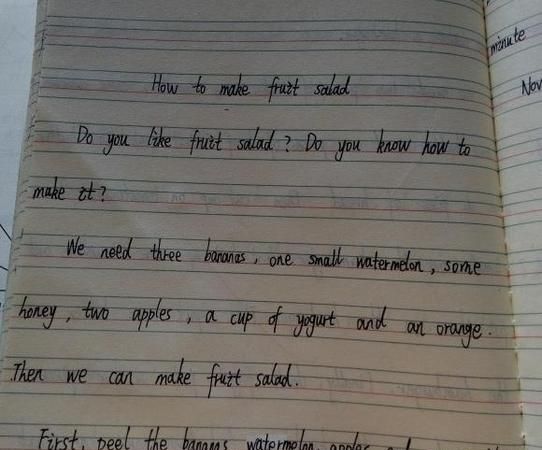 How to make fruit salad
Do you like fruit salad? Do you know how to
make it?
We need three bananas, one small watermelon, some
honey, two apples, a cup of yogurt and an orange.
Then we can make fruit salad.
First, peel the bananas, watermelon, apples
minute
Nov